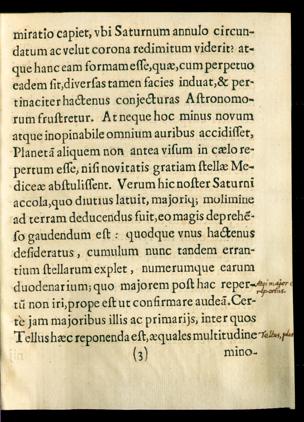 miratio capiet, vbi Saturnum annulo circun-
datum ac velut corona redimitum viderit? at-
que hanc eam formam esse, quæ, cum perpetuo
eadem sit, diversas tamen facies induat, & per-
tinaciter hactenus conjecturas Astronomo-
rum frustretur. At neque hoc minus novum
atque inopinabile omnium auribus accidisset,
Planetã aliquem non antea visum in cælo re-
pertum esse, nisi novitatis gratiam stellæ Me-
diceæ abstulissent. Verum hic noster Saturni
accola, quo diutius latuit, majoriq; molimine
ad terram deducendus fuit, eo magis deprehẽ-
so gaudendum est: quodque vnus hactenus
desideratus, cumulum nunc tandem erran-
tium stellarum explet, numerumque earum
duodenarium; quo majorem post hac reper-
tũ non iri, prope est ut confirmare audeã. Cer-
te jam majoribus illis ac primarijs, inter quos
Tellus hæc reponenda est, æquales multitudine
(3)
mino-
major
repertus.
Tellus,